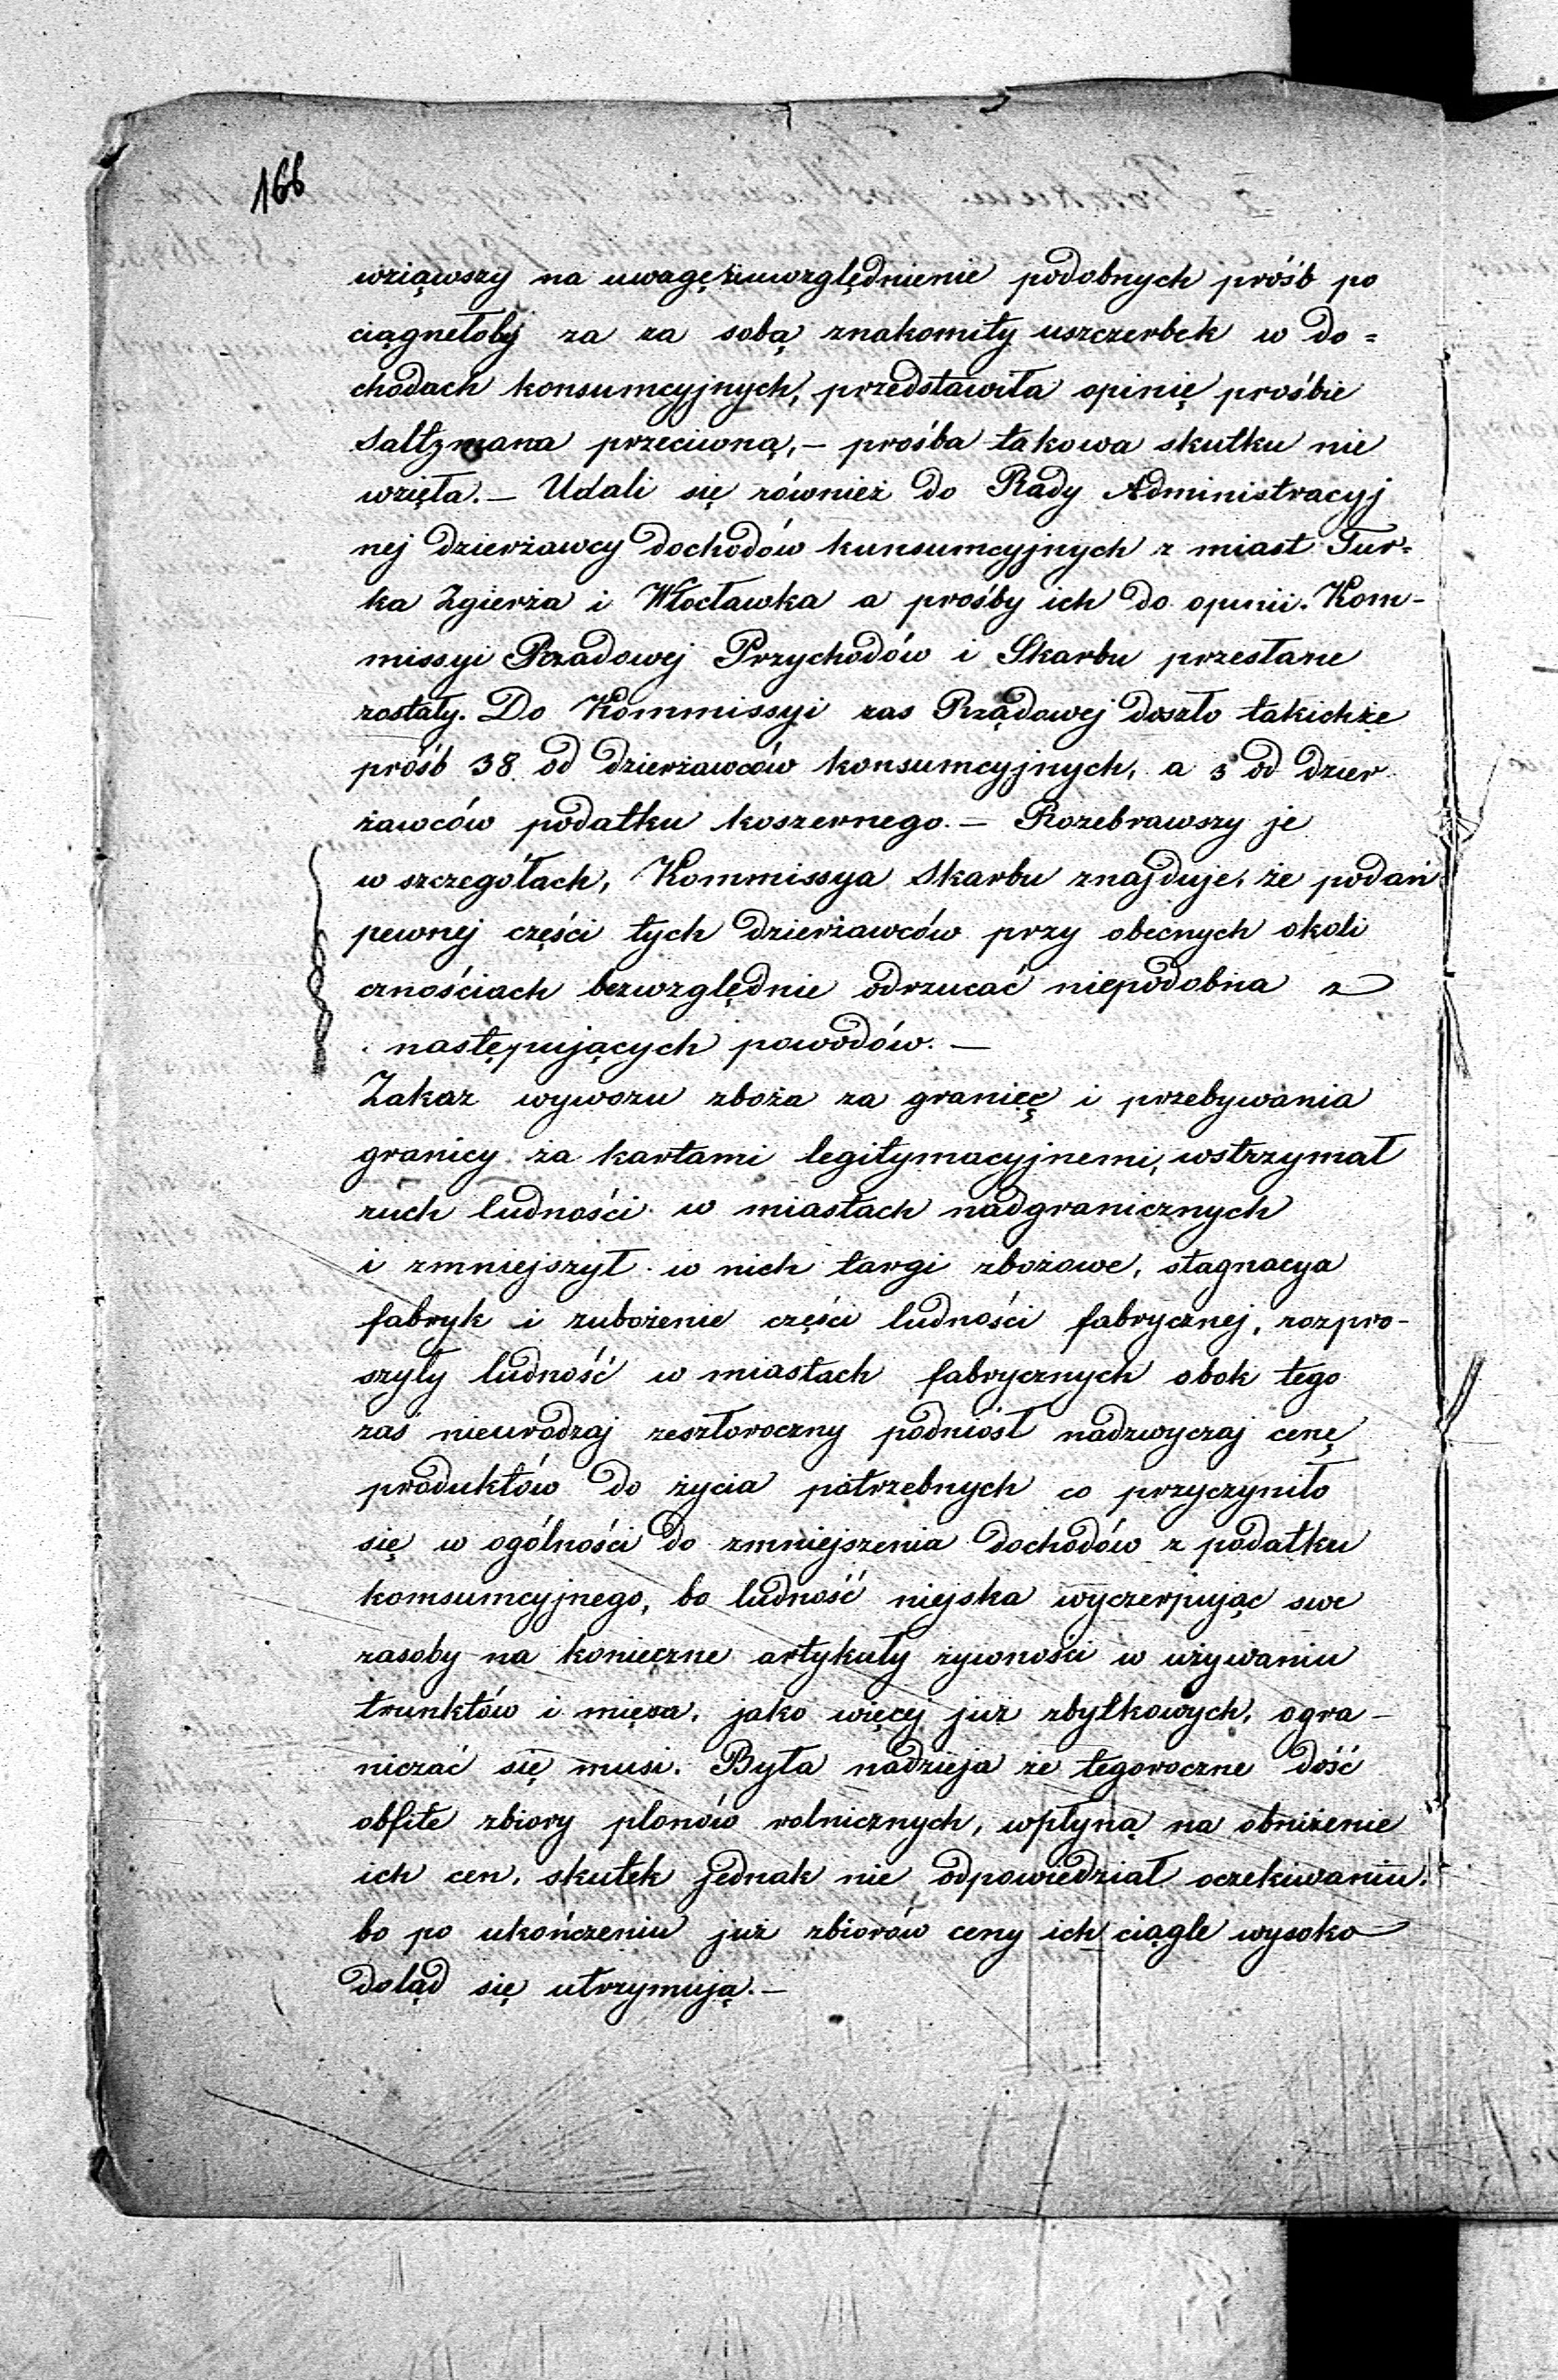 166
wziąwszy na uwagę że uwzględnienie podobnych próśb po
ciągnełoby za za sobą znakomity uszczerbek w do=
chodach konsumcyjnych, przedstawiła opinię prośbie
Saltzmana przeciwną, – prośba takowa skutku nie
wzięła. – Udali się również do Rady Administracyj
nej dzierżawcy dochodów kunsumcyjnych z miast Tur=
ka Zgierża i Włocławka a prośby ich do opinii Kom-
missyi Rządowej Przychodów i Skarbu przesłane
zostały. Do Kommissyi zas Rządowej doszło takichże
próśb 38 od dzierżawców konsumcyjnych, a 3 od dzier
żawców podatku koszernego. – Rozebrawszy je
w szczegółach, Kommissya Skarbu znajduje, że podań
pewnej części tych dzierżawców przy obecnych okoli
cznościach bezwzględnie odrzucać niepodobna z
następujących powodów. –
Zakaz wywozu zboża za granicę i przebywania
granicy za kartami legitymacyjnemi, wstrzymał
ruch ludności w miastach nadgranicznych
i zmniejszył w nich targi zbożowe, stagnacya
fabryk i zubożenie części ludności fabrycznej, rozpro-
szyły ludność w miastach fabrycznych obok tego
zaś nieurodzaj zeszłoroczny podniosł nadzwyczaj cenę
produktów do życia potrzebnych co przyczyniło
się w ogólności do zmniejszenia dochodów z podatku
komsumcyjnego, bo ludność niejska wyczerpując swe
zasoby na konieczne artykuły żywności w używaniu
trunktów i mięsa, jako więcej już zbytkowych, ogra-
niczać się musi. Była nadzieja że tegoroczne dość
obfite zbiory plonów rolnicznych, wpłyną na obniżenie
ich cen, skutek jednak nie odpowiedział oczekiwaniu,
bo po ukończeniu już zbiorów ceny ich ciągle wysoko
dotąd się utrzymują. –